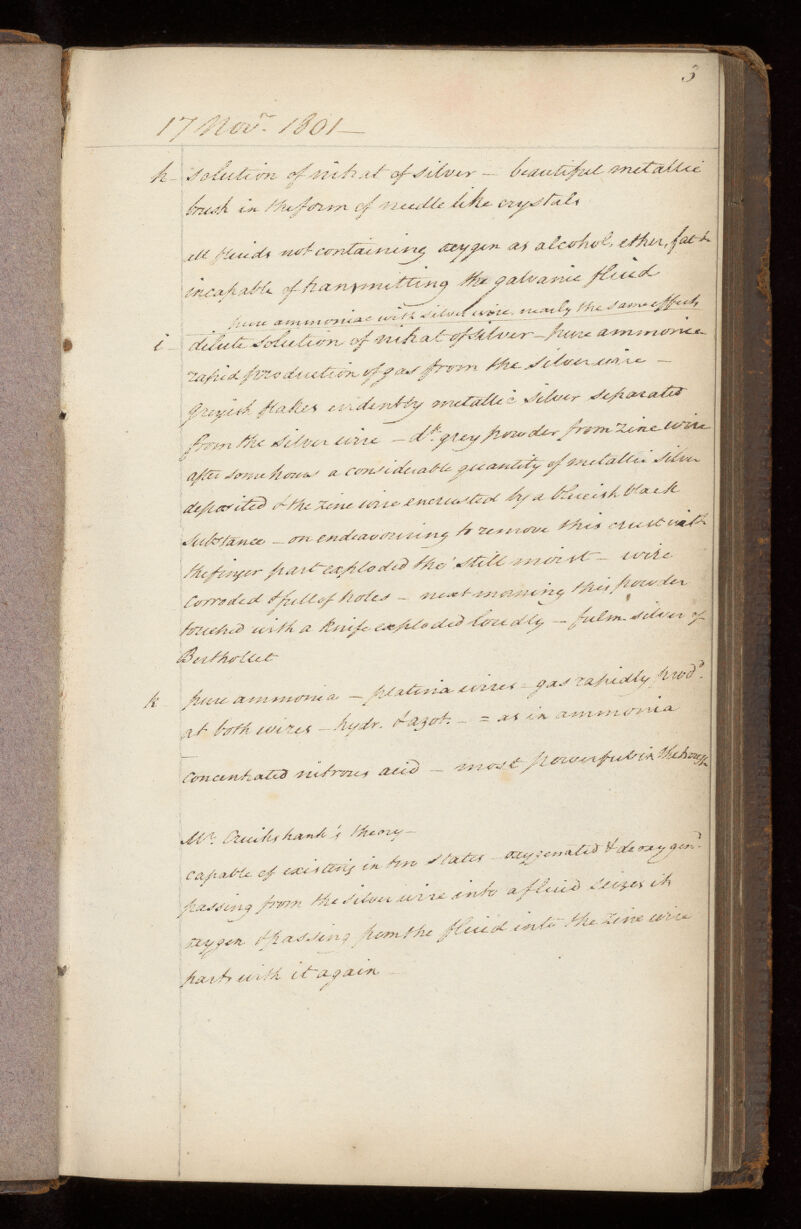 3
17 Novr. 1801 —
h - solution of nitrat of silver — beautiful metallic
brush in the form of needle like crystals
all fluids not containing oxygen as alcohol, ether, fat &
incapable of transmitting the galvanic fluid
pure ammoniac with silver wire, nearly the same effects
i - dilute solution of nitrat of silver - pure ammonia
rapid production of gas from the silver wire —
greyish flakes evidently metallic silver separated
from the silver wire — dk. grey powder from zinc wire
after some hours a considerable quantity of metallic silver
deposited & the zinc wire encrusted by a blueish black
substance — on endeavouring to remove this crust with
the finger part exploded tho' still moist — wire
corroded & full of holes — next morning this powder
touched with a knife exploded loudly — fulm. silver of
Berthollet
k pure ammonia — platina wires - gas rapidly prodd.
at both wires — hydr. & azot. - = as in ammonia
concentrated nitrous acid — most powerful in the trough
Mr. Cruikshank's theory —
capable of existing in two states — oxygenated & deoxygend.
passing from the silver wire into a fluid seizes its
oxygen & passing from the fluid into the zinc wire
parts with it again —